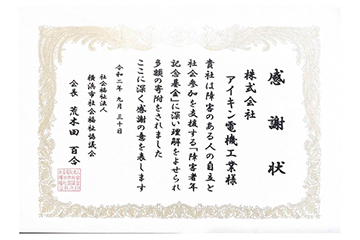 感謝状
株式会社
アイキン電機工業様
貴社は障害のある人の自立と
社会参加を支援する「障害者年
記念基金」に深い理解をよせられ
多額の寄附をされました
ここに深く感謝の意を表します
令和二年九月三十日
社会福祉法人
横浜市社会福祉協議会
会長 荒木田百合